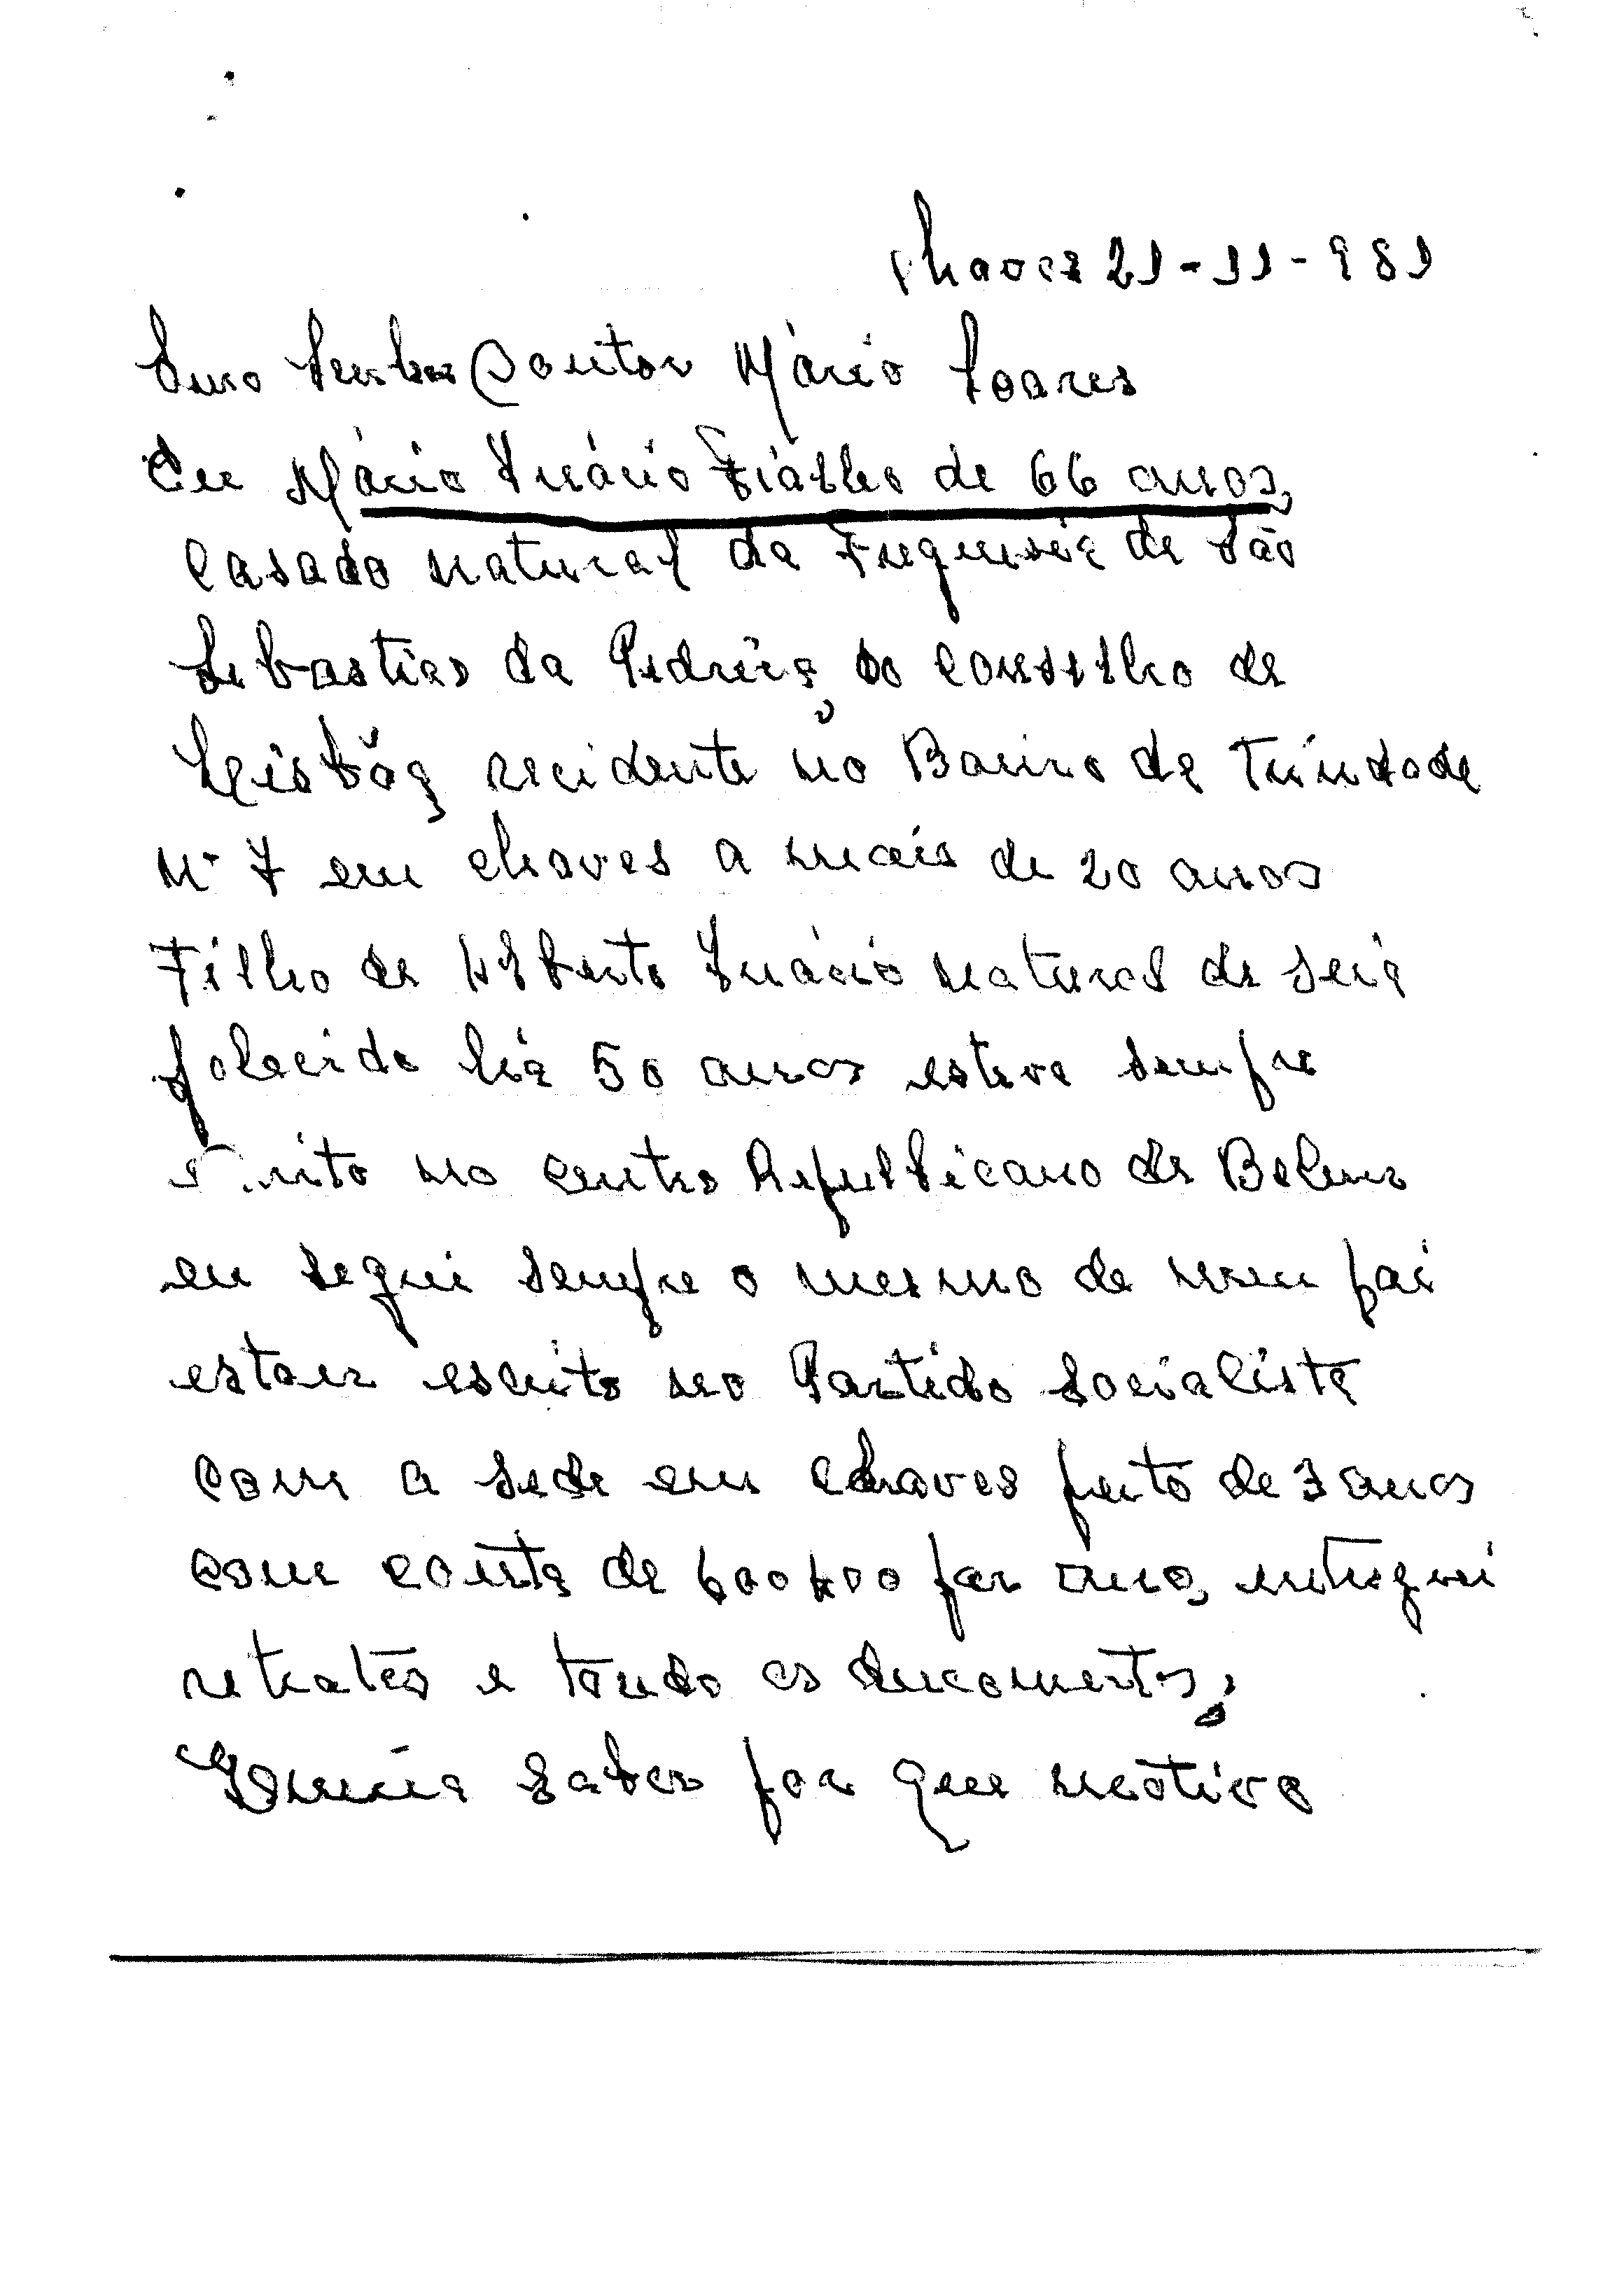 Chaves 21-11-981
Senhor Doutor Mário Soares
Eu Mário Inácio Fialho de 66 anos,
Casado natural da Freguesia de São
Sebastião da Pedreira, do Conselho de
Leisbõa, recidente no Bairro da Trindade
Nº 7 em chaves a mais de 20 anos
Filho de Alberto Inácio natural de Seia
falecido há 50 anos esteve sempre
no Centro Republicano de Belem
eu segui sempre o mesmo de meu pai
estou escrito no Partido Socialista
com a sede em Chaves perto de 3 anos
com conta de 600$00 por ano, entreguei
retratos e toudo os ducomentos,
saber por que motivo